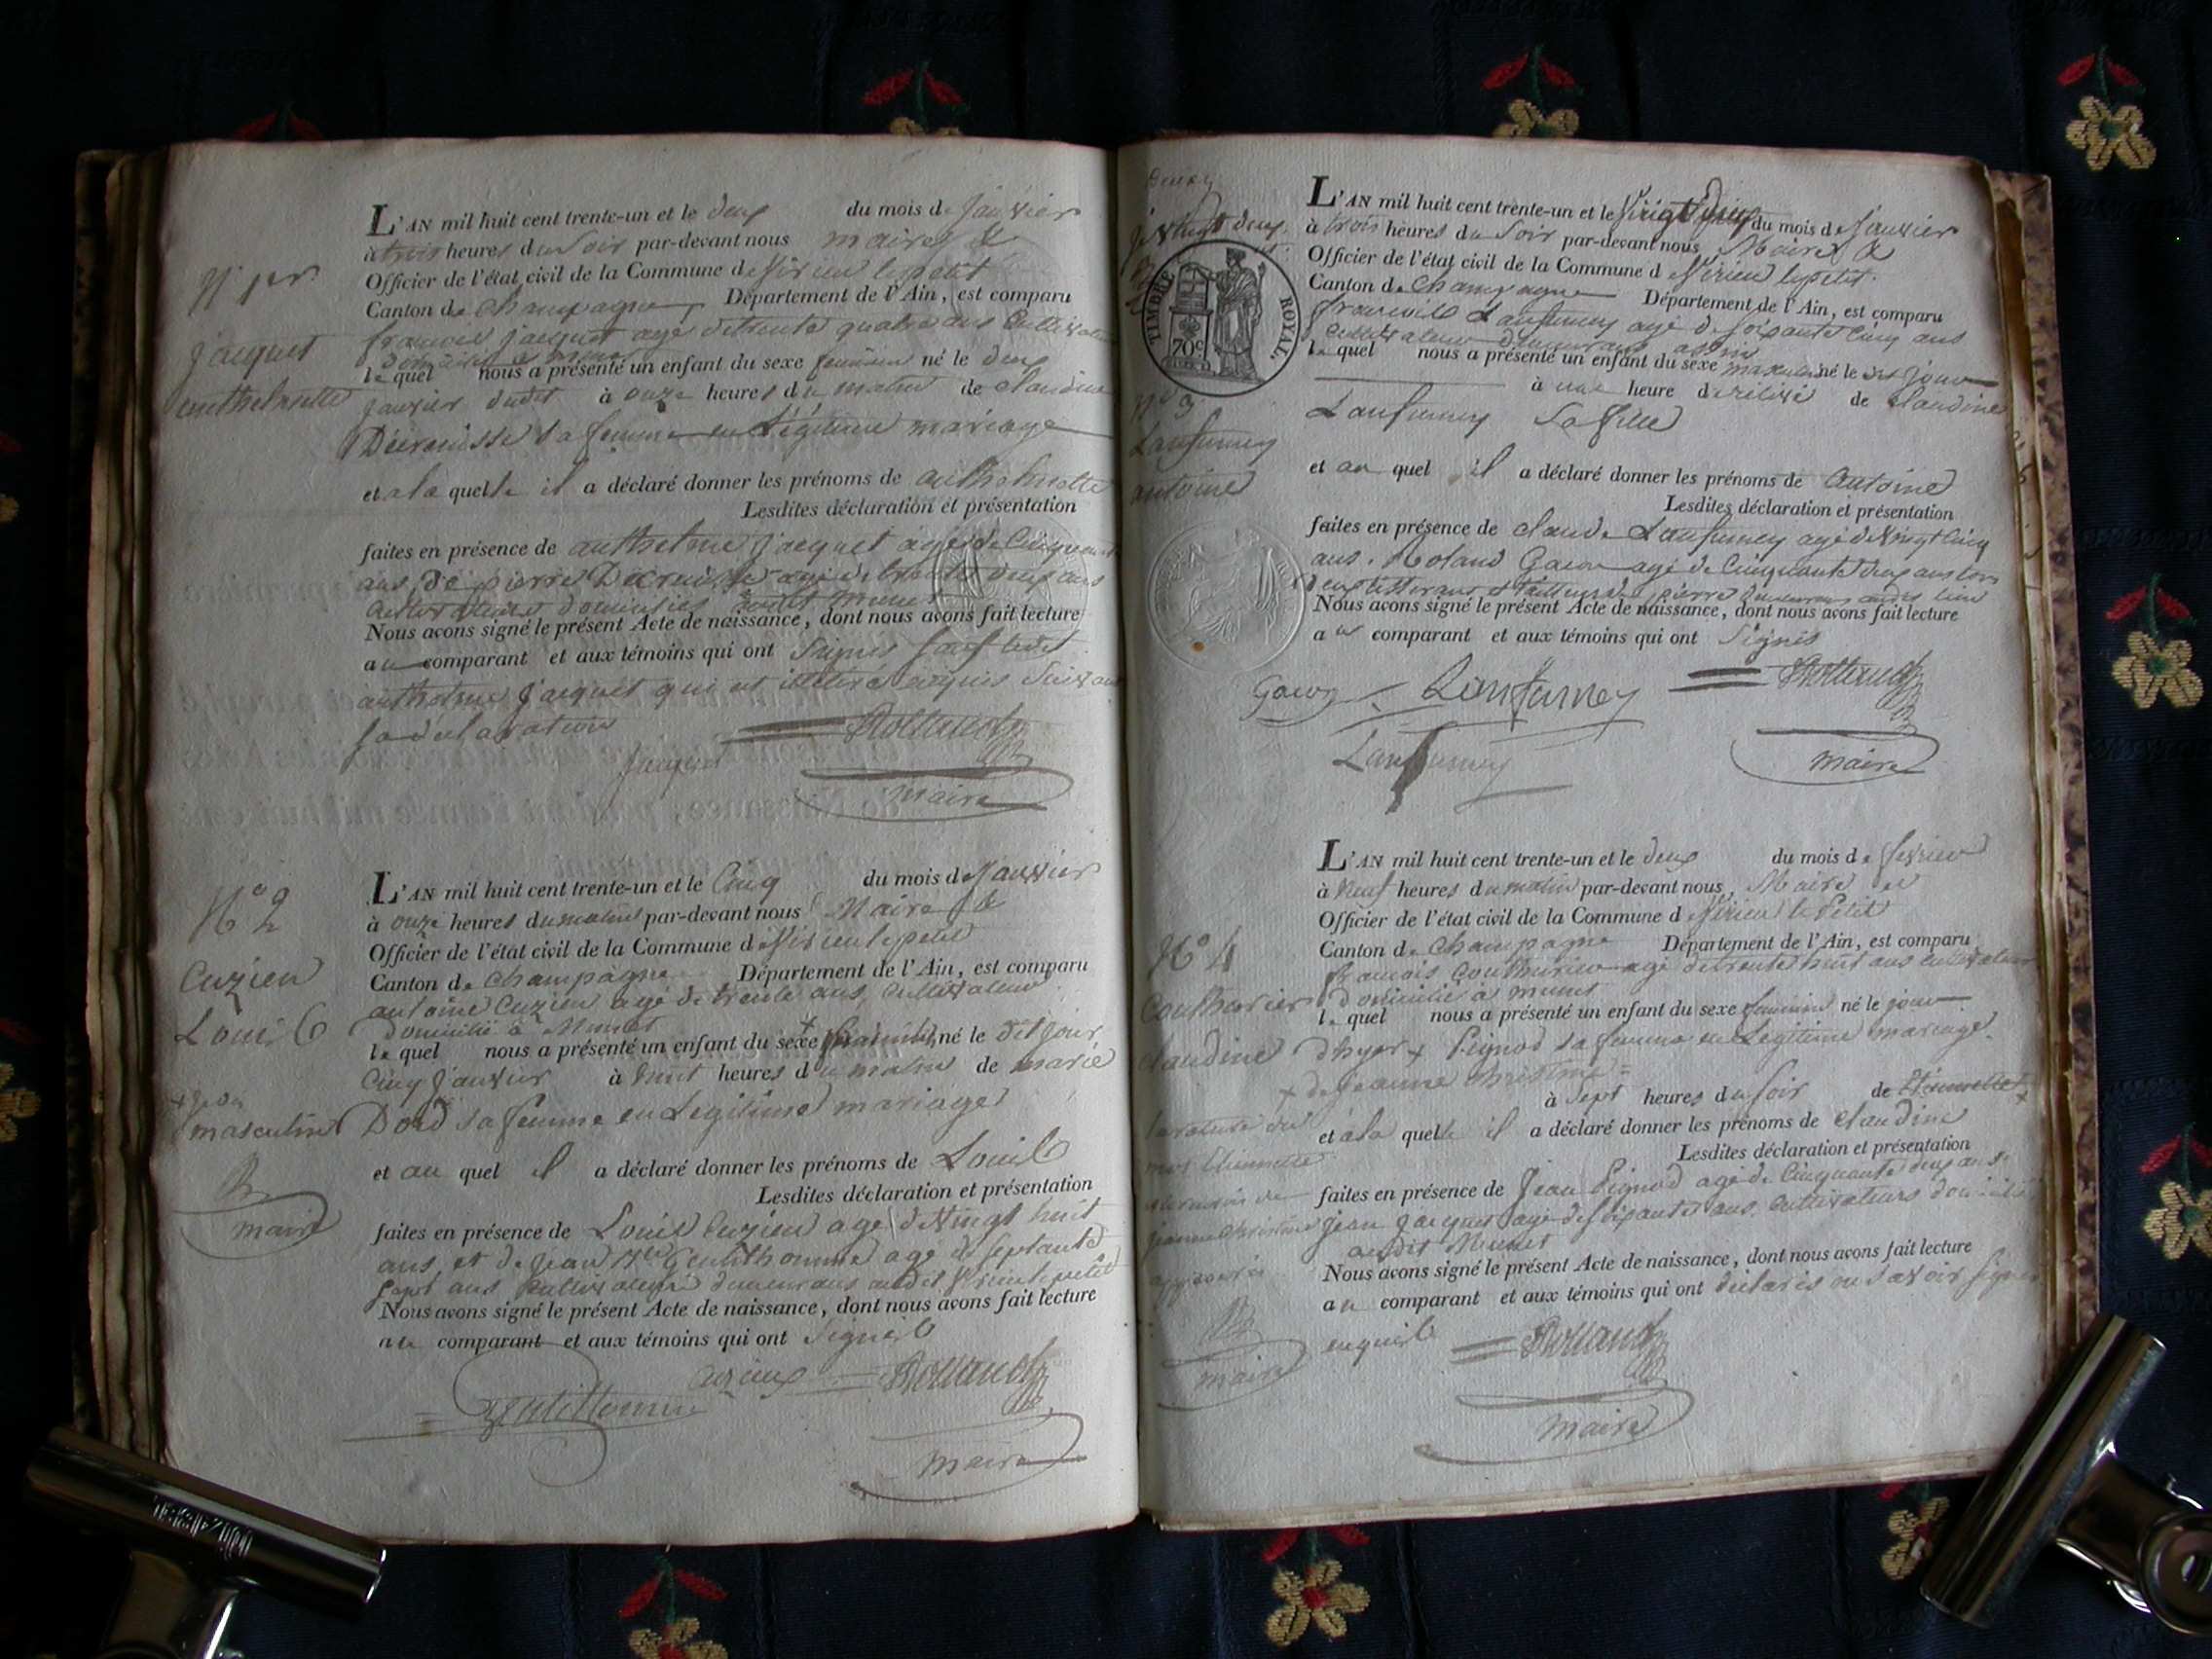 L'AN mil huit cent trente-un et le deux du mois de janvier
à trois heures du soir par-devant nous maire &
Officier de l'état civil de la Commune de Virieu le petit
Canton de Champagne Département de l'Ain, est comparu
françois jacquet agé de trente quatre ans Cultivateur
lequel nous a présenté un enfant du sexe feminin né le deux
janvier dudit à onze heures du matin de claudine
sa femme en légitime mariage
et a la quelle il a déclaré donner les prénoms de anthelmette
Lesdites déclaration et présentation
faites en présence de anthelme jacquet agé de Cinquante
ans, de pierre agé de trente deux ans
Cultivateurs domiciliés audit Munet
Nous avons signé le présent Acte de naissance, dont nous avons fait lecture
au comparant et aux témoins qui ont Signés sauf ledit
anthelme jacquet qui est illitéré requis Suivant
sa déclaration
Rolland
jacquet
maire
N° 1er
jacquet
anthelmette
L'AN mil huit cent trente-un et le Cinq du mois de janvier
à onze heures du matin par-devant nous Maire &
Officier de l'état civil de la Commune de Virieu le petit
Canton de Champagne Département de l'Ain, est comparu
antoine Cuzieu agé de trente ans, Cultivateur
Domicilié à Munet
lequel nous a présenté un enfant du sexe né le dit jour
Cinq janvier à huit heures du matin de marie
Dord sa femme en Legitime mariage
et au quel il a déclaré donner les prénoms de Louis
Lesdites déclaration et présentation
faites en présence de Louis Cuzieu agé de Vingt huit
ans et de jean Gentilhomme agé de Septante
Sept ans Cultivateurs demeurans audit Virieu le petit
Nous avons signé le présent Acte de naissance, dont nous avons fait lecture
au comparant et aux témoins qui ont Signés
Cuzieu Rolland
Gentilhomme
maire
N° 2
Cuzieu
Louis
masculin
maire
L'AN mil huit cent trente-un et le du mois de janvier
à trois heures du Soir par-devant nous Maire &
Officier de l'état civil de la Commune de Virieu le petit
Canton de Champagne Département de l'Ain, est comparu
françois Lanfumey agé de soixante Cinq ans
Cultivateur demeurant
lequel nous a présenté un enfant du sexe masculin né le dit jour
à une heure de relevé de Claudine
Lanfumey Sa fille
et au quel il a déclaré donner les prénoms de Antoine
Lesdites déclaration et présentation
faites en présence de claude Lanfumey agé de Vingt Cinq
ans. Roland Gacon agé de Cinquante deux ans
Nous avons signé le présent Acte de naissance, dont nous avons fait lecture
au comparant et aux témoins qui ont Signés
Gacon Lanfumey Rolland
Lanfumey maire
TIMBRE ROYAL.
70c
N° 3
Lanfumey
antoine
L'AN mil huit cent trente-un et le deux du mois de fevrier
à Neuf heures du matin par-devant nous, Maire et
Officier de l'état civil de la Commune de Virieu le Petit
Canton de Champagne Département de l'Ain, est comparu
françois Couthurier agé de trente huit ans cultivateur
Domicilié à munet
lequel nous a présenté un enfant du sexe feminin né le jour
d'hyer + Pignod sa femme en Legitime mariage.
+ de jeanne Christine =
à Sept heures du Soir de Etiennette +
et à la quelle il a déclaré donner les prénoms de claudine
Lesdites déclaration et présentation
faites en présence de Jean Pignod agé de Cinquante deux ans.
jean jacquet agé de soixante ans. cultivateurs domiciliés
audit Munet
Nous avons signé le présent Acte de naissance, dont nous avons fait lecture
au comparant et aux témoins qui ont déclarés ne savoir signer
enquis
Rolland
maire
N° 4
Couthurier
claudine
la rature du
mot Etiennette
jeanne Christine
approuvé
maire